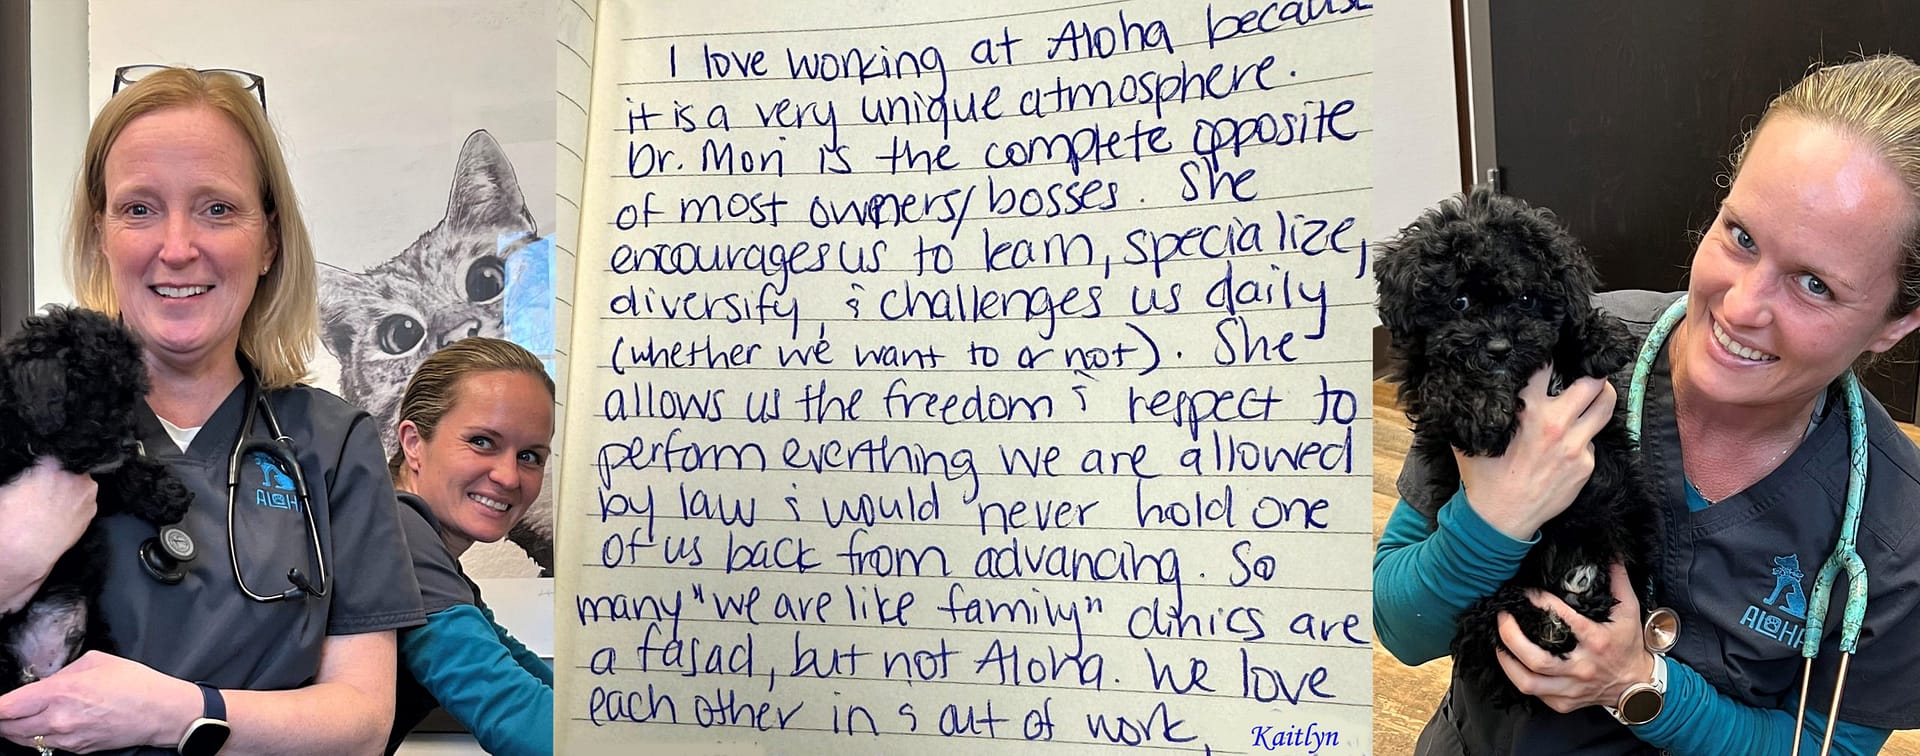 I love working at Aloha because
it is a very unique atmosphere.
Dr. Mori is the complete opposite
of most owners/bosses. She
encourages us to learn, specialize,
diversify, & challenges us daily
(whether we want to or not). She
allows us the freedom & respect to
perform everthing we are allowed
by law & would never hold one
of us back from advancing. So
many "we are like family" clinics are
a fasad, but not Aloha. We love
each other in & out of work.
Kaitlyn
ALOHA
ALOHA